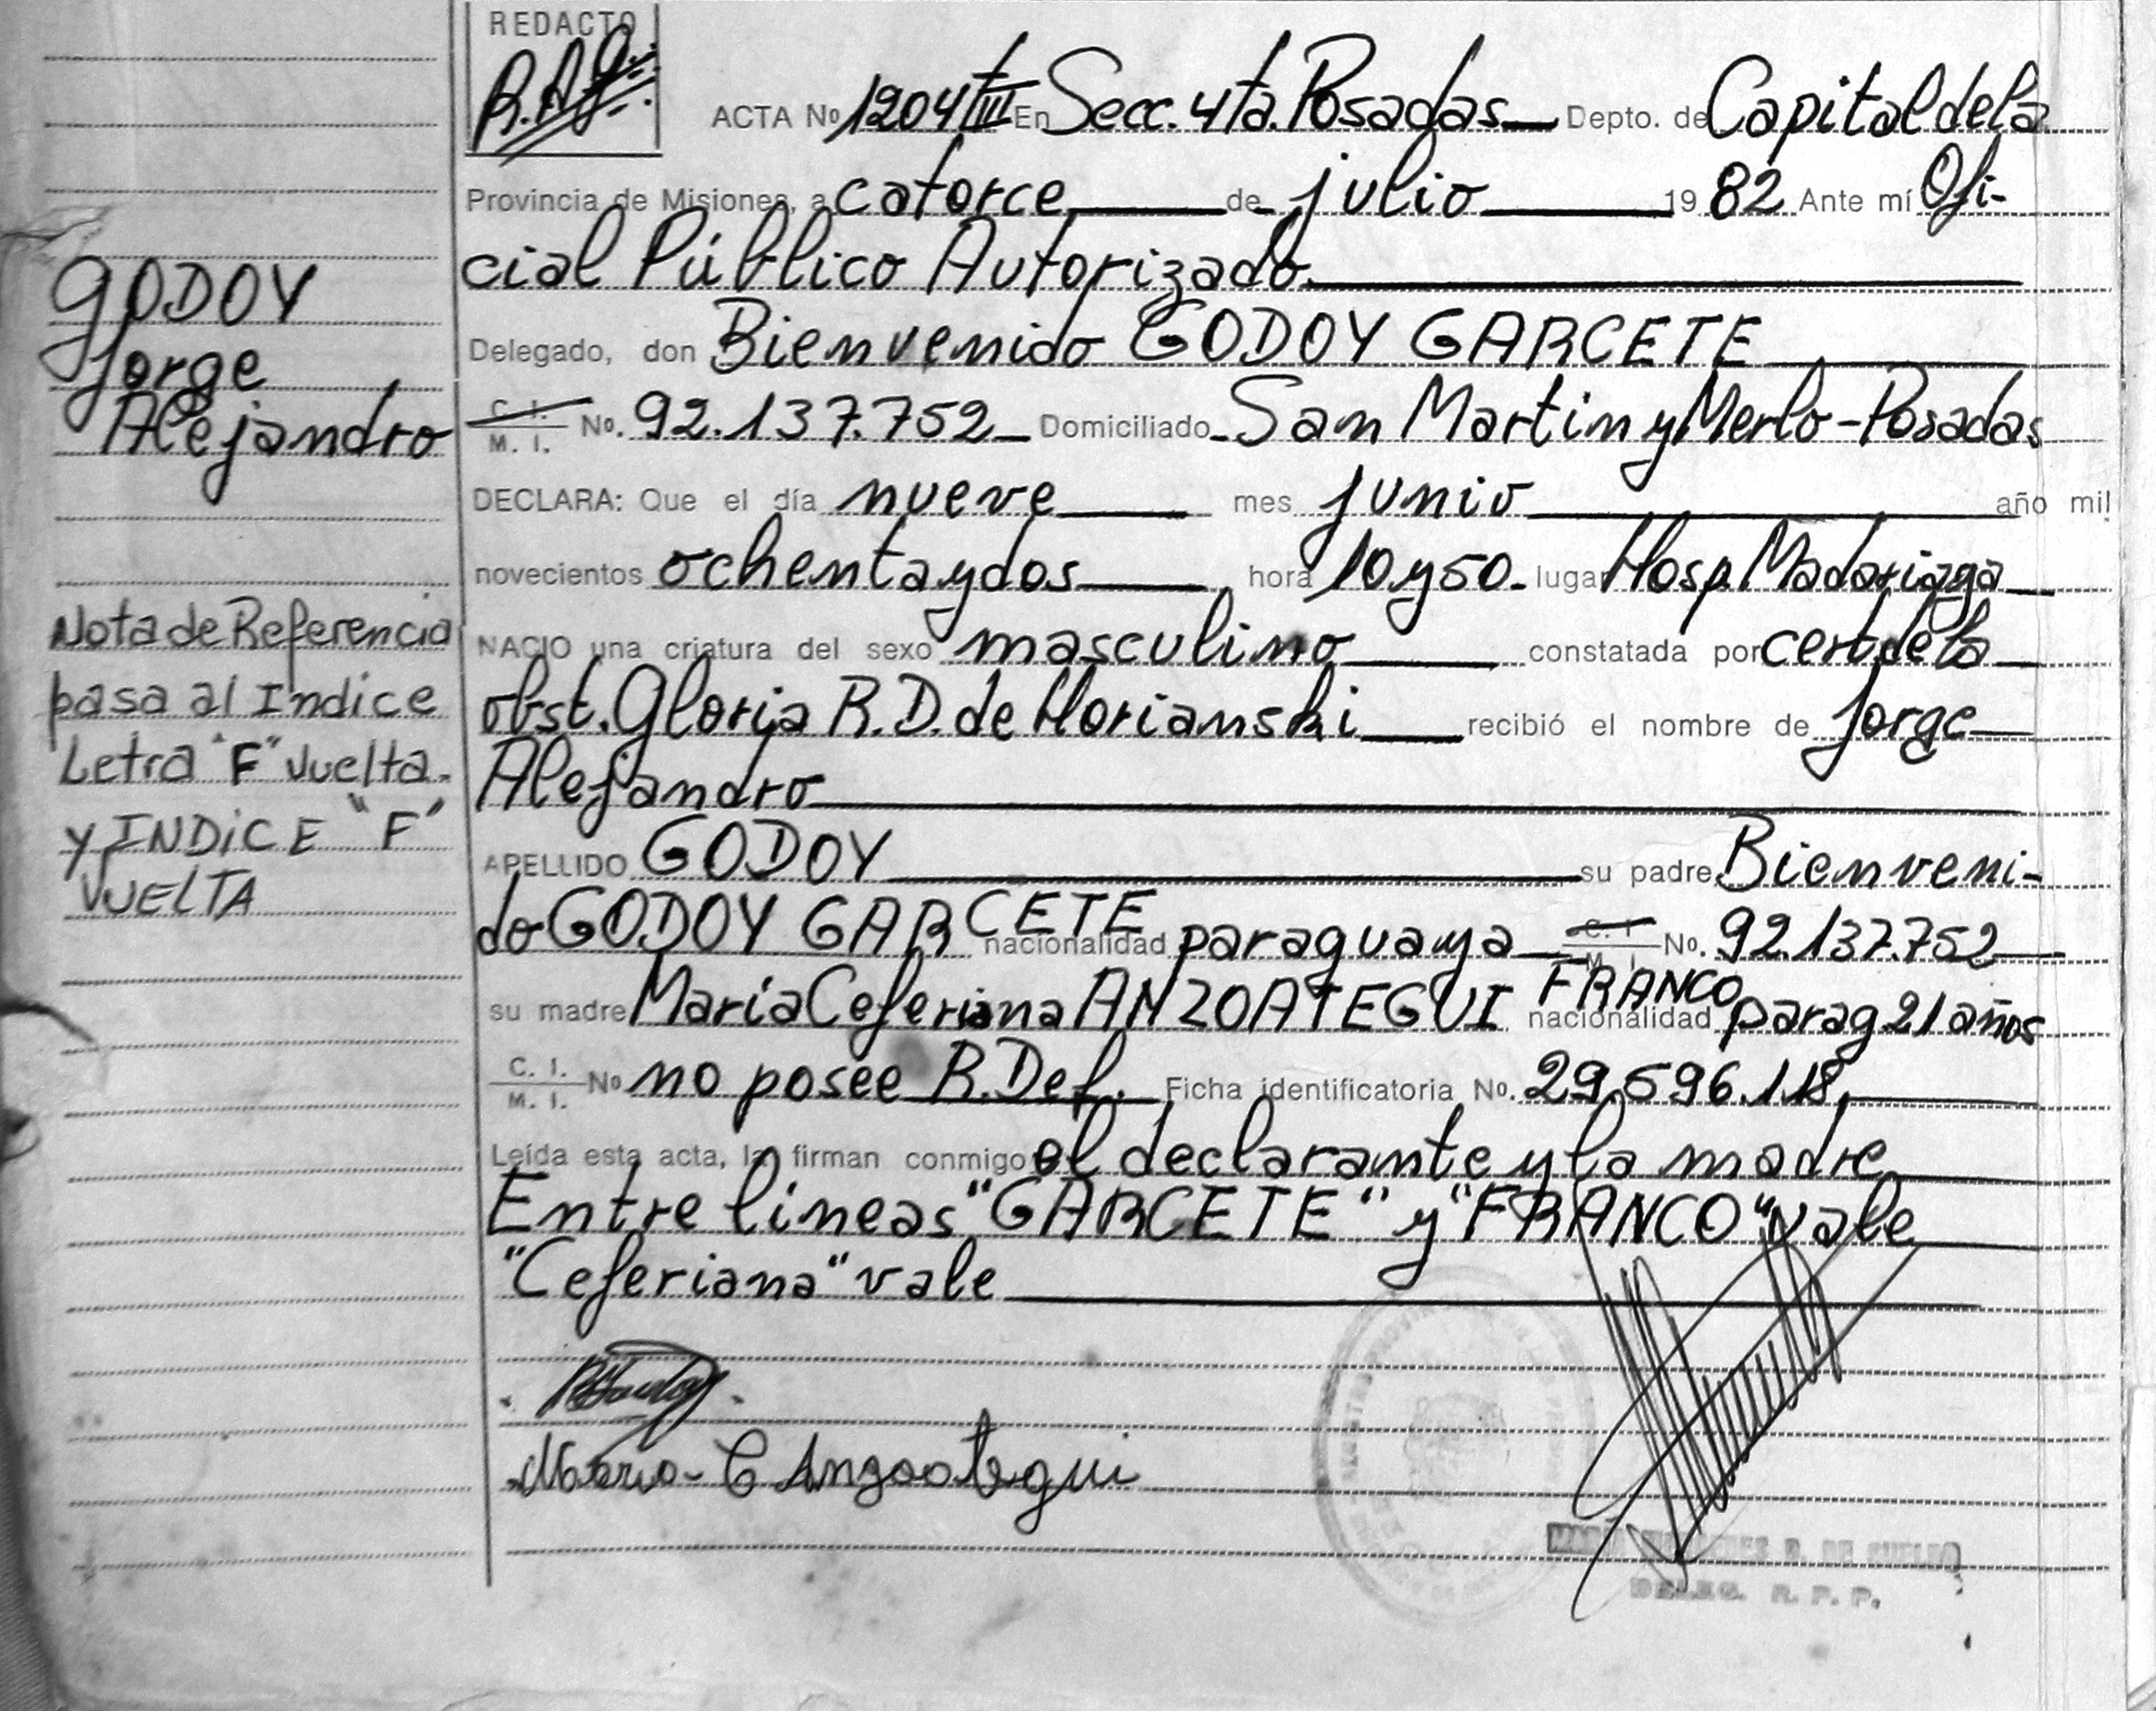 REDACTO
R.A.G.
ACTA No 1204 tIII En Secc. 4ta. Posadas Depto. de Capital de la
Provincia de Misiones, a catorce de julio 1982 Ante mí Ofi-
cial Público Autorizado.
Delegado, don Bienvenido GODOY GARCETE
C. I. / M. I. No. 92.137.752 Domiciliado San Martin y Merlo - Posadas
DECLARA: Que el día nueve mes junio año mil
novecientos ochenta y dos hora 10 y 50 lugar Hosp. Madariaga
NACIO una criatura del sexo masculino constatada por cert. de la
obst. Gloria R. D. de Horianski recibió el nombre de Jorge
Alejandro
APELLIDO GODOY su padre Bienveni-
do GODOY GARCETE nacionalidad paraguaya C. I. / M. I. No. 92.137.752
su madre Maria Ceferiana ANZOATEGUI FRANCO nacionalidad parag 21 años
C. I. / M. I. No no posee R. Def. Ficha identificatoria No. 29.596.118,
Leída esta acta, la firman conmigo el declarante y la madre
Entre lineas "GARCETE" y "FRANCO" vale
"Ceferiana" vale
Maria C Anzoategui
DELEG. R. P. P.
GODOY
Jorge
Alejandro
Nota de Referencia
pasa al Indice
Letra "F" Vuelta.
y INDICE "F"
VUELTA